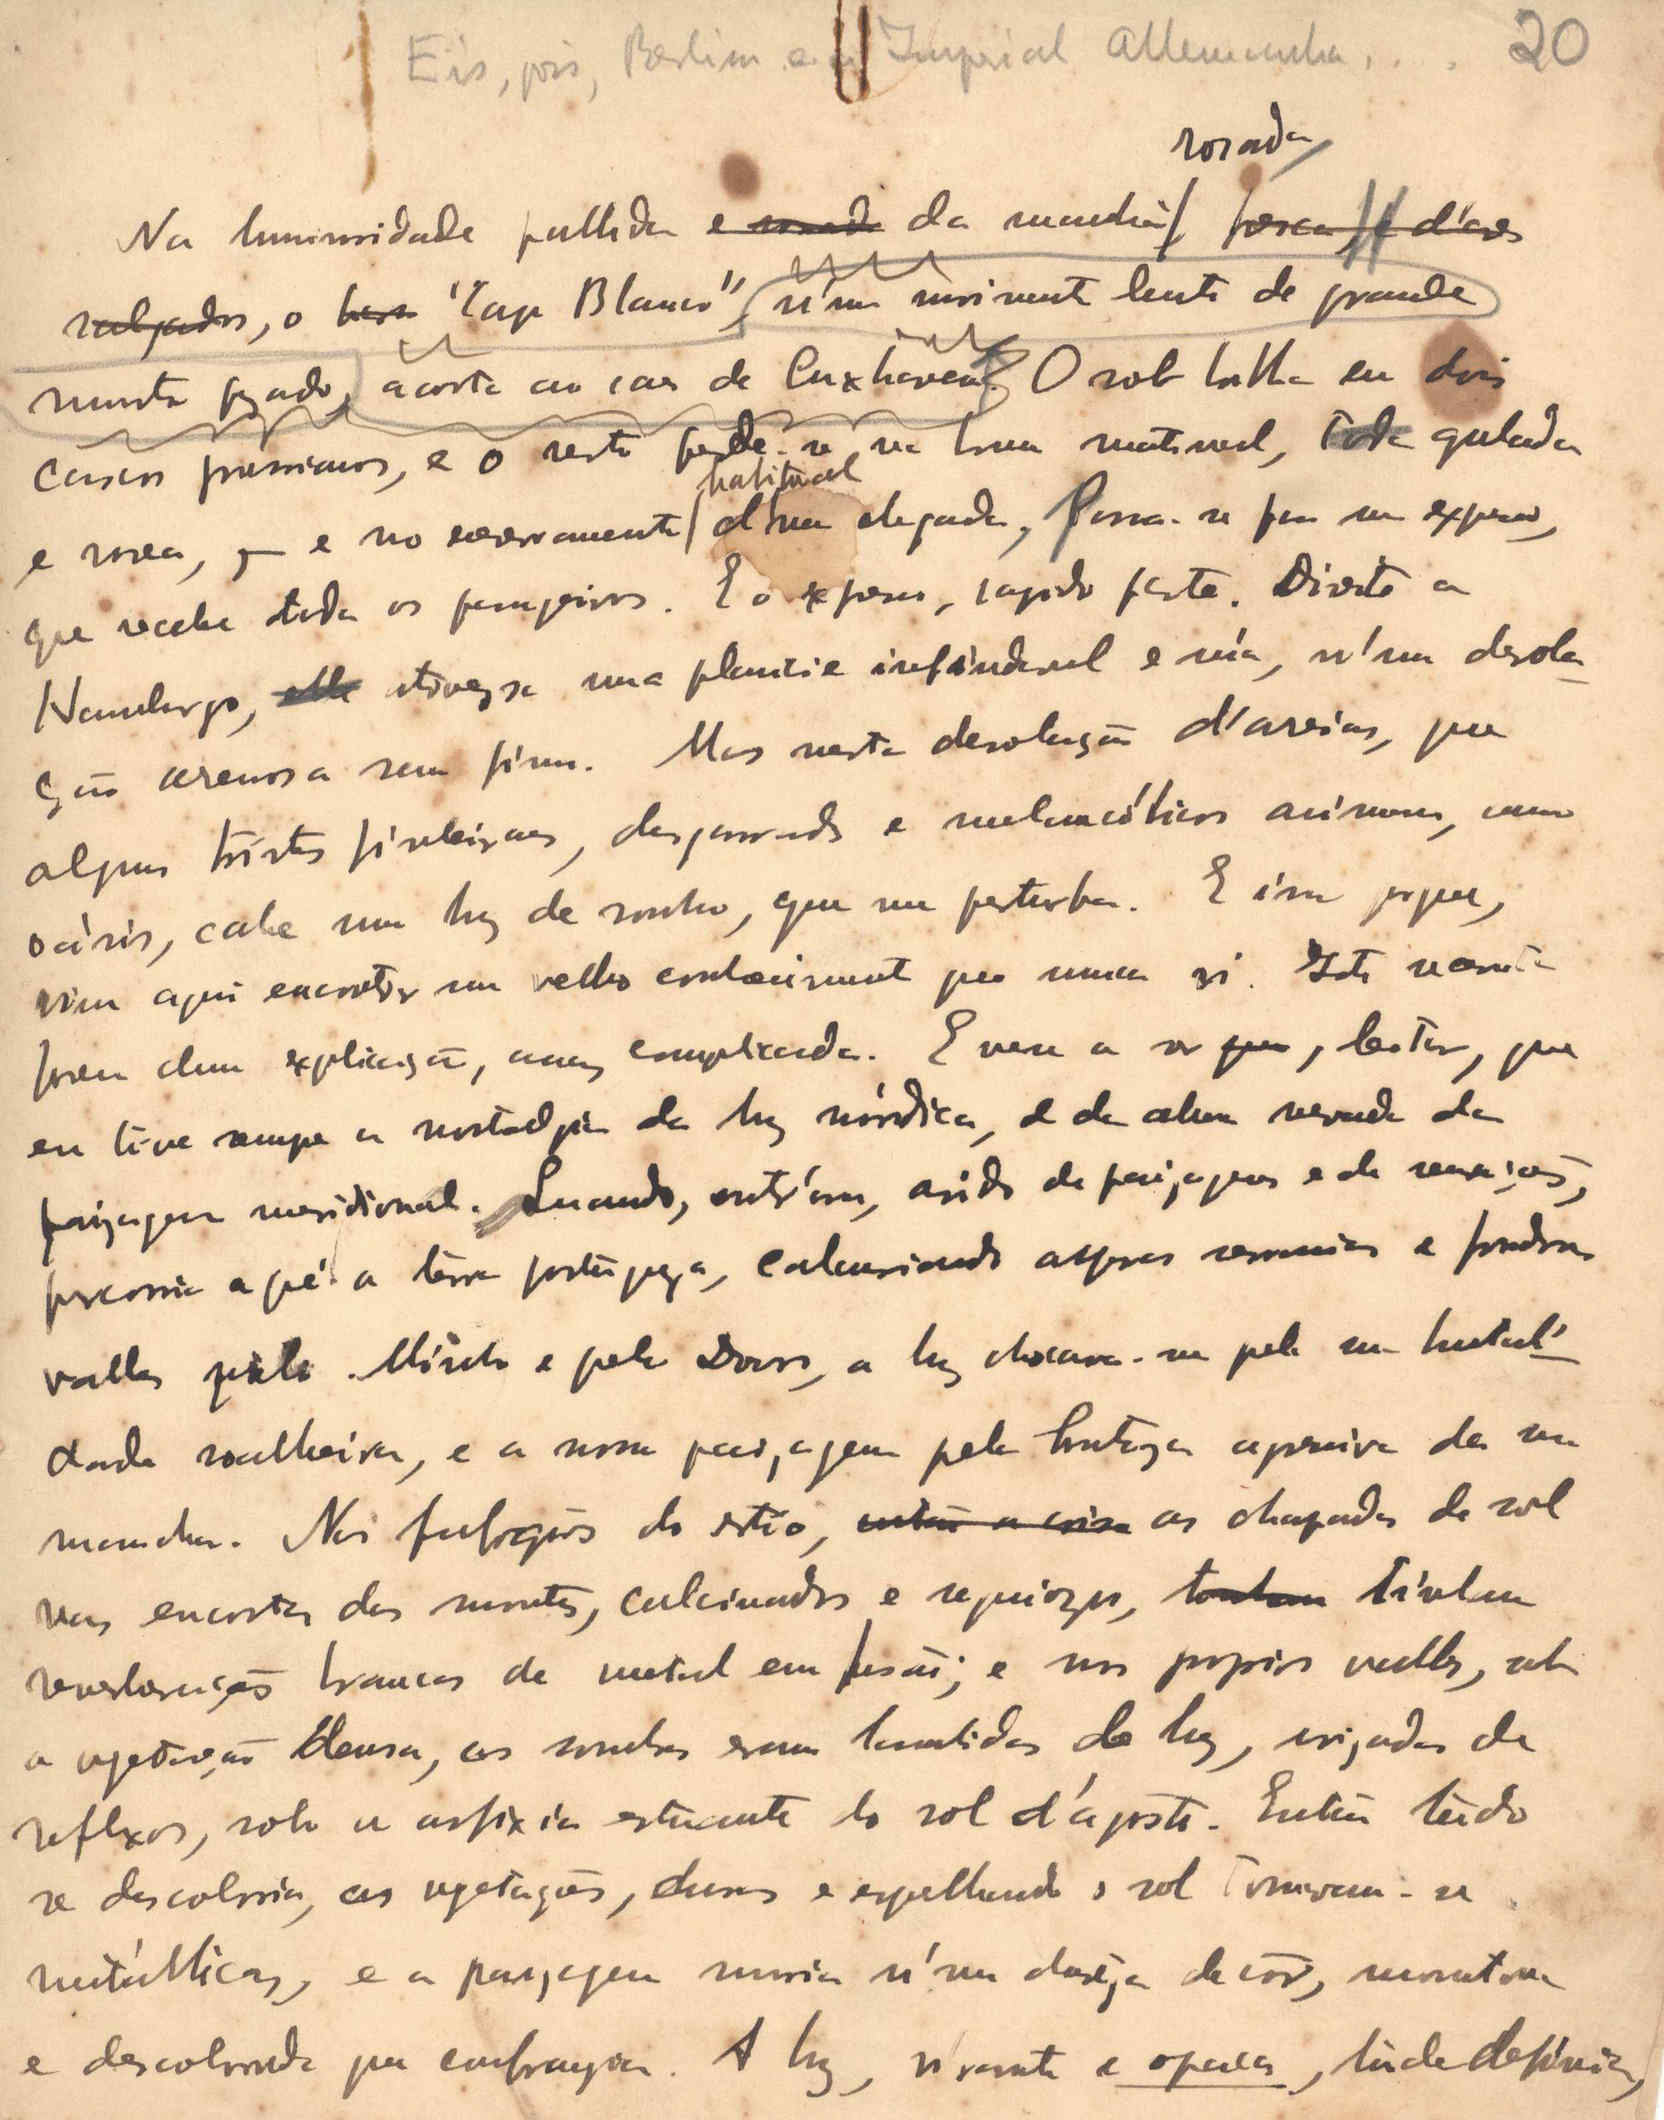 Eis, pois, Berlim e a Imperial Allemanha... 20
rosada,
Na luminosidade pallida e rosada da manhã, fresca, e d'ares
salgados, o bom "Cap Blanco", n'um movimento lento de grande
monstro pezado, acosta ao caes de Cuxhaven. O sol batte em dois
cascos prussianos, e o resto perde-se na bruma matinal, toda gelada
habitual
e rosea, e no encerramento d'uma chegada. Passa-se para um expresso,
que recebe todos os passageiros. E o expresso, rapido parte. Direito a
Hamburgo, elle atravessa uma planicie infindavel e núa, n'uma desola-
ção arenosa sem fim. Mas nesta desolação d'areias, que
alguns tristes pinheiraes, desgarrados e melancólicos animam, como
oásis, cahe uma luz de sonho, que me perturba. E isso porque,
vim aqui encontrar um velho conhecimento que nunca vi. Isto necessita
para uma explicação, assaz complicada. E vem a ser que, leitor, que
eu tive sempre a nostalgia da luz nórdica, e da alma nevada da
paizagem meridional. Quando, outr'ora, avido de paizagens e de sensações,
percorria a pé a terra portugueza, calcurriando asperas serranias e fundos
valles pelo Minho e pelo Douro, a luz chocava-me pela sua brutali-
dade soalheira, e a nossa paizagem pela bruteza agressiva da sua
mancha. Nas fulgurações do estio, então a coisa as chapadas de sol
nas encostas dos montes, calcinados e sequiosos, tinham
reverberações brancas de metal em fusão; e nos proprios valles, sob
a vegetação densa, as sombras eram batidas de luz, irizadas de
reflexos, sob a asfixia estuante do sol d'agosto. Então tudo
se descoloria, as vegetações, duras e espelhando o sol tornavam-se
metállicas, e a paizagem morria n'uma dureza de côr, monotona
e descolorada que confrangia. A luz, vibrante e opaca, tudo definia,